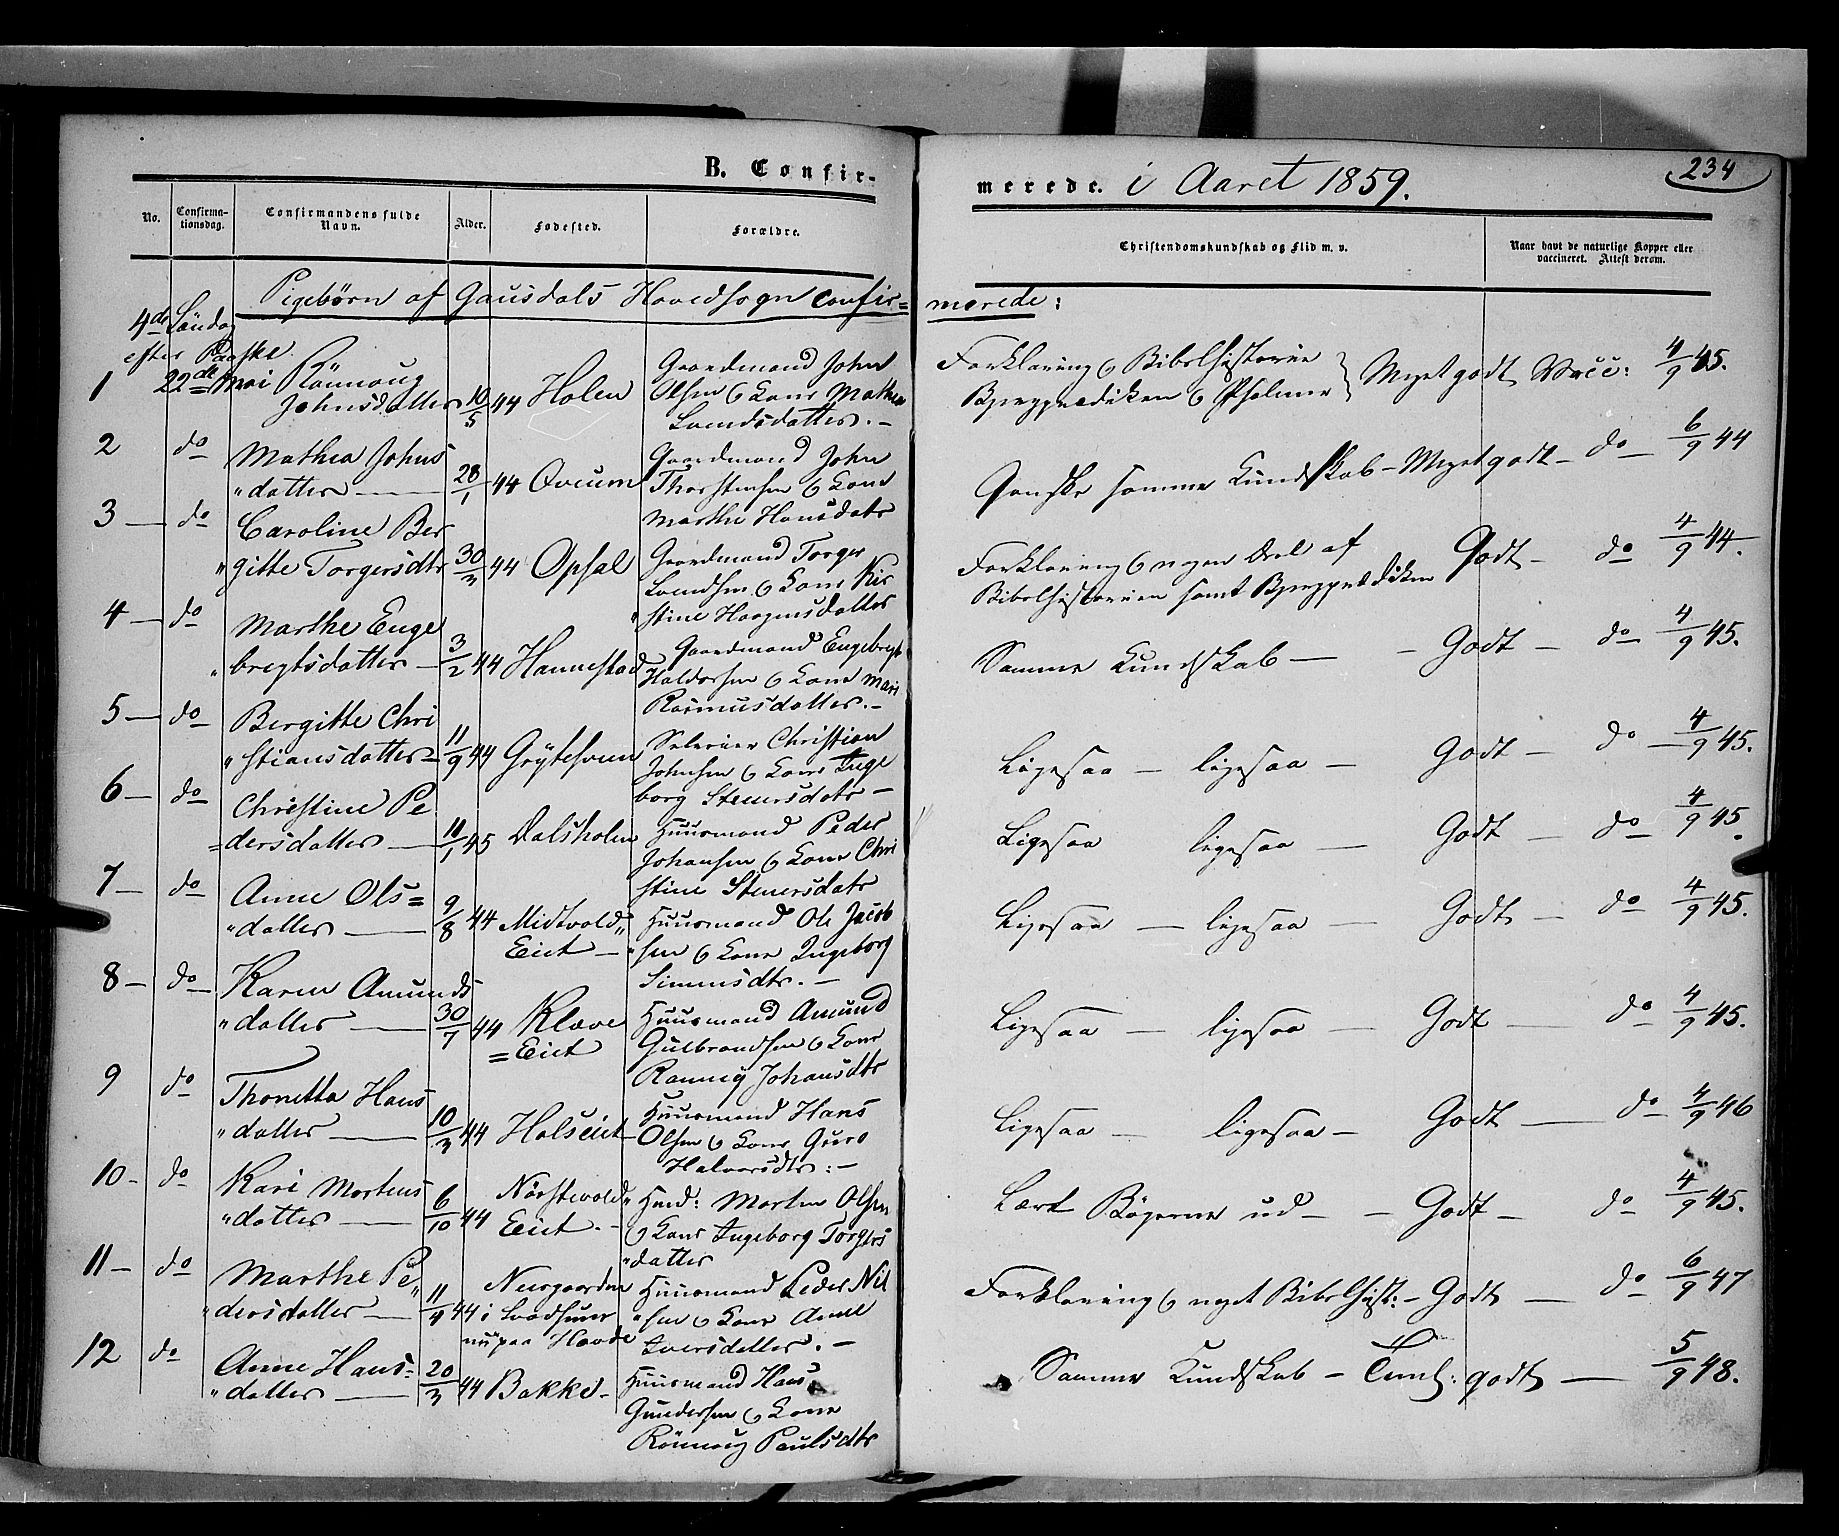 B. Confir-
merede. i Aaret 1859.
234
No.
Confirma-
tionsdag.
Confirmandens fulde
Navn.
Alder.
Fødested.
Forældre.
Christendomskundskab og Flid m. v.
Naar havt de naturlige Kopper eller
vaccineret. Attest derom.
Pigebørn af Gausdals Hovedsogn confir=
merede:
4de Söndag
efter Paaske
1 22de Mai Rönnoug
Johnsdatter 10/5 44 Holen
Gaardmand John
Olsen & Kone Mathea
Svendsdatter. -
Forklaring & Bibelhistorie
Bjergprædiken & Psalmer } Meget godt Vacc: 4/9 45.
2 do Mathea Johns
"datter — 28/1 44 Oveum
Gaardmand John
Thorstensen & Kone
Marthe Hansdatr
Ganske samme Kundskab - Meget godt - do 6/9 44
3 — do Caroline Ber
"gitte Torgersdtr 30/3 44 Opsal
Gaardmand Torger
Svendsen & Kone Kir
"stine Haagensdatter
Forklaring & nogen Deel af
Bibelhistorien samt Bjergprædiken Godt - do 4/9 44.
4 — do Marthe Enge
"bregtsdatter — 3/2 44 Hannestad
Gaardmand Engebregt
Haldorsen & Kone Mari
Rasmusdatter. -
Samme Kundskab — - Godt — do 4/9 45.
5 — do Bergitte Chri
"stiansdatter - 11/9 44 Gröytesveen
Selveier Christian
Johnsen & Kone Inge
borg Steuersdatr -
Ligesaa — ligesaa — Godt - do 4/9 45.
6 — do Christine Pe
=dersdatter — 11/1 45 Dalsholen
Huusmand Peder
Johansen & Kone Chri
stine Steuersdatr
Ligesaa ligesaa — Godt — do 4/9 45.
7 — do Anne Ols=
"datter — 9/8 44 Midtvold"
Eiet -
Huusmand Ole Jacob
"sen & Kone Ingeborg
Simensdtr. -
Ligesaa — ligesaa — Godt — do 4/9 45.
8 — do Karen Amunds
"datter — 30/7 44 Klæve
=Eiet
Huusmand Amund
Gulbrandsen & Kone
Rannig Johansdtr
Ligesaa — ligesaa — Godt — do 4/9 45.
9 do Thonetta Hans
"datter — 10/3 44 Holseiet
Huusmand Hans
Olsen & Kone Guro
Halvorsdtr: -
Ligesaa — ligesaa — Godt — do 4/9 46
10 - do Kari Mortens
"datter — 6/10 44 Nörstevold"
Eiet. -
Hmd: Morten Olsen
& Kone Ingeborg Torgers
"datter
Lært Bøgerne ud - - Godt - do 4/9 45.
11 — do Marthe Pe"
"dersdatter — 11/4 44 Neegaarden
i Svadsum
nu paa Hovde
Huusmand Peder Nil
"sen & Kone Anne
Iversdatter. -
Forklaring & noget Bibelhist: - Godt — do 6/9 47
12 do Anne Hans=
"datter — 20/3 44 Bakke -
Huusmand Hans
Gundersen & Kone
Rönnoug Paulsdtr
Samme Kundskab - Teml: godt — 5/9 48.